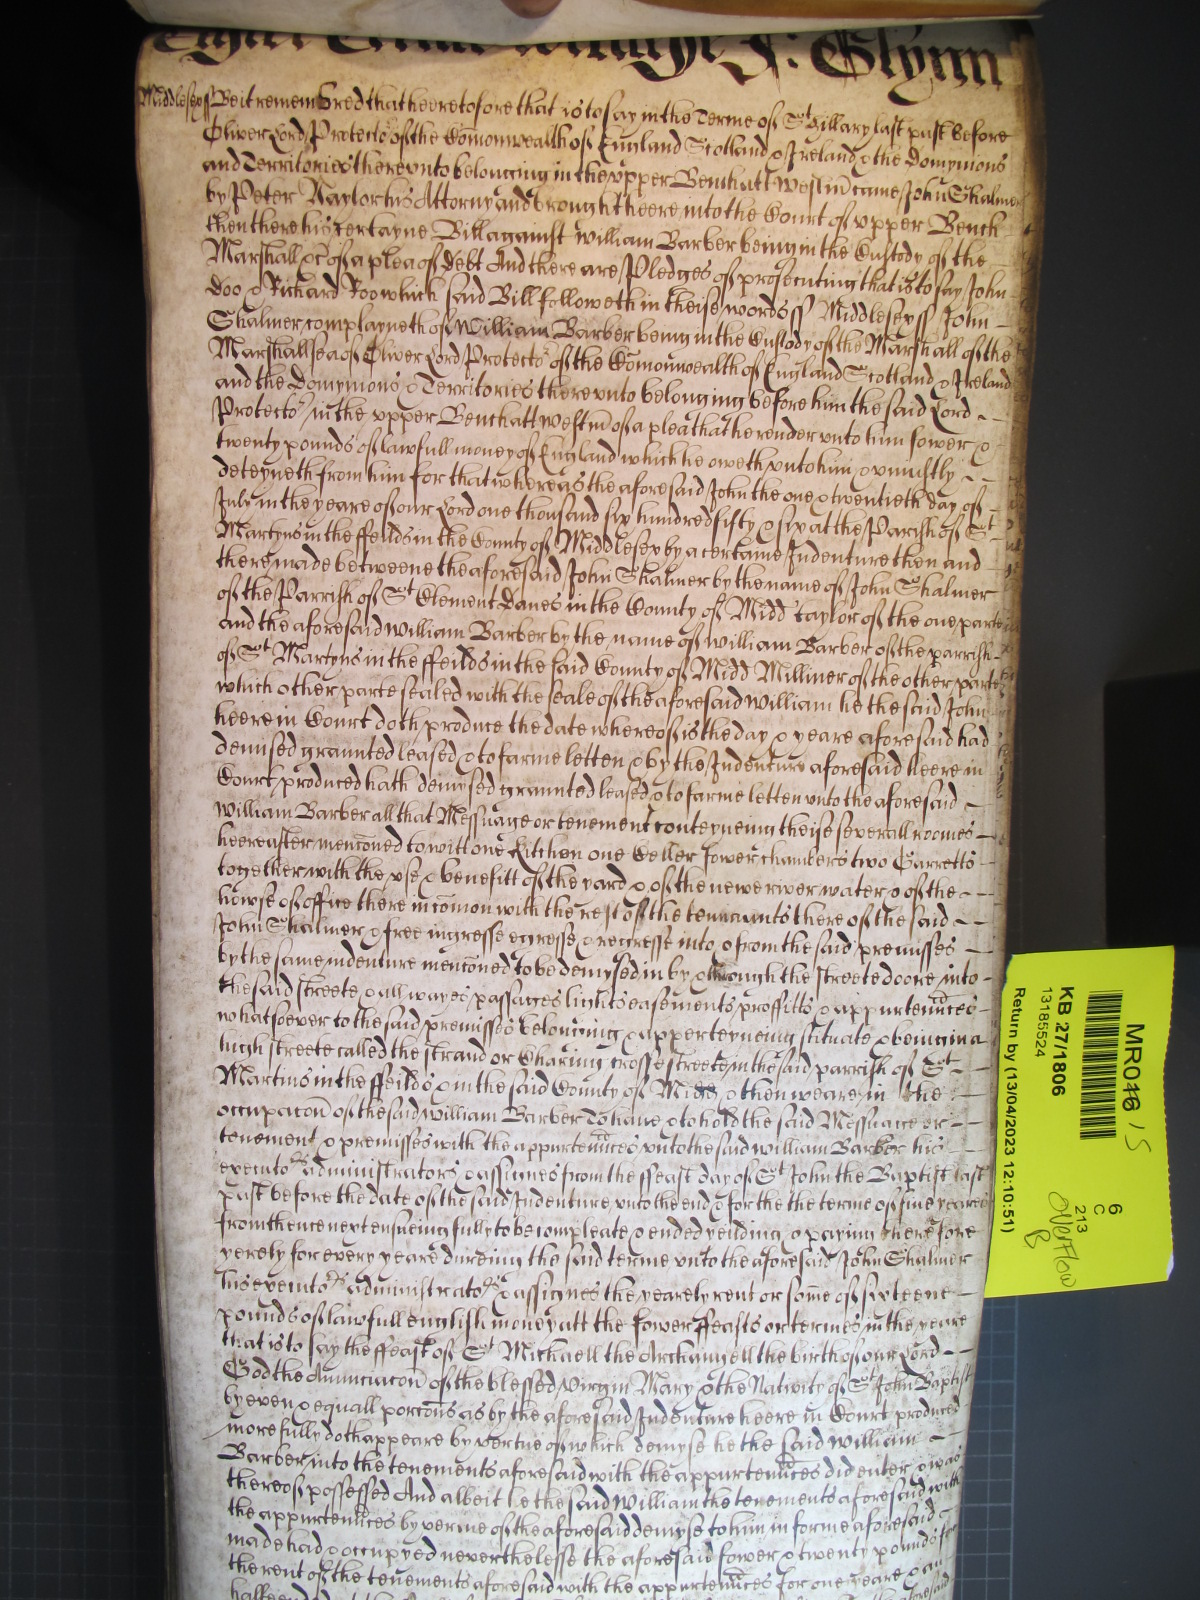 J: Glynn
Middlesex ss Be it remembred that heeretofore that is to say in the Terme of St hillary last past before
Oliver Lord Protector of the Com̄onwealth of England Scotland & Ireland & the Domynions
and Territories thereunto belonging in the vpper Bench att Westm̄ came John Shalmer
by Peter Naylor his Attorny and brought heere into the Court of vpper Bench
then there his certayne Bill against William Barber being in the Custody of the
Marshall &c of a plea of debt And there are Pledges of prosecuting that is to say John
Doo & Richard Roo which said Bill followeth in theise words ss Middlesex ss John
Shalmer complayneth of William Barber being in the Custody of the Marshall of the
Marshallsea of Oliver Lord Protector of the Com̄onwealth of England Scotland & Ireland
and the Domynions & Territories there vnto belonging before him the said Lord
Protector in the vpper Bench att Westm̄ of a plea that he render vnto him fower &
twenty pounds of lawfull money of England which he oweth vnto him & vniustly
deteyneth from him for that whereas the aforesaid John the one & twentieth day of
July in the yeare of our Lord one thousand six hundred fifty & six at the Parish of St
Martyns in the ffeilds in the County of Middlesex by a certaine Indenture then and
there made betweene the aforesaid John Shalmer by the name of John Shalmer
of the Parrish of St Clement Danes in the County of Midd taylor of the one parte
and the aforesaid William Barber by the name of William Barber of the parrish
of St Martyns in the ffeilds in the said County of Midd Milliner of the other parte
which other parte sealed with the seale of the aforesaid William he the said John
heere in Court doth produce the date whereof is the day & yeare aforesaid had
demised graunted leased & to farme letten & by the Indenture aforesaid heere in
Court produced hath demysed graunted leased & to farme letten vnto the aforesaid
William Barber all that Messuage or tenement conteyneing theise severall roomes
heereafter menc̄oned to witt one Kitchen one Celler fower chambers two Garretts
together with the vse & benefitt of the yard & of the newe river water & of the
howse of office there in com̄on with the rest of the tennaunts there of the said
John Shalmer & free ingresse egresse & regresse into & from the said premisses
by the same indenture menc̄oned to be demysed in by & through the streete doore into
the said streete & all wayes passages lights easements proffitts & appurtenn̄ces
whatsoever to the said premisses belonging & apperteyneing scituate & being in a
high streete called the strand or Charing crosse streete in the said parrish of St
Martins in the ffeilds & in the said County of Midd & then weare in the
occupac̄on of the said William Barber To have & to hold the said Messuage or
tenement & premisses with the appurtenn̄ces vnto the said William Barber his
executors administrators & assignes from the ffeast day of St John the Baptist last
past before the date of the said Indenture vnto the end & for the the terme of five yeares
from thence next ensueing fully to be compleate & ended yeilding & paying therefore
yerely for every yeare dureing the said terme vnto the aforesaid John Shalmer
his executors administrators & assignes the yearely rent or som̄e of sixteene
pounds of lawfull english money att the fower ffeasts or termes in the yeare
that is to say the ffeast of St Michaell the Archangell the birth of our Lord
God the Annunciac̄on of the blessed virgin Mary & the Nativity of St John Baptist
by even & equall porc̄ons as by the aforesaid Indenture heere in Court produced
more fully doth appeare by vertue of which demyse he the said William
Barber into the tenements aforesaid with the appurtenn̄ces did enter & was
thereof possessed And albeit he the said William the tenements aforesaid with
the appurtenn̄ces by vertue of the aforesaid demyse to him in forme aforesaid
made had & occupyed neverthelesse the aforesaid fower & twenty pounds for
the rent of the tenements aforesaid with the appurtenn̄ces for one yeare & an
MR016 15
KB 27/1806
13185524
Return by (13/04/2023 12:10:51)
6
C
213
overflow
B